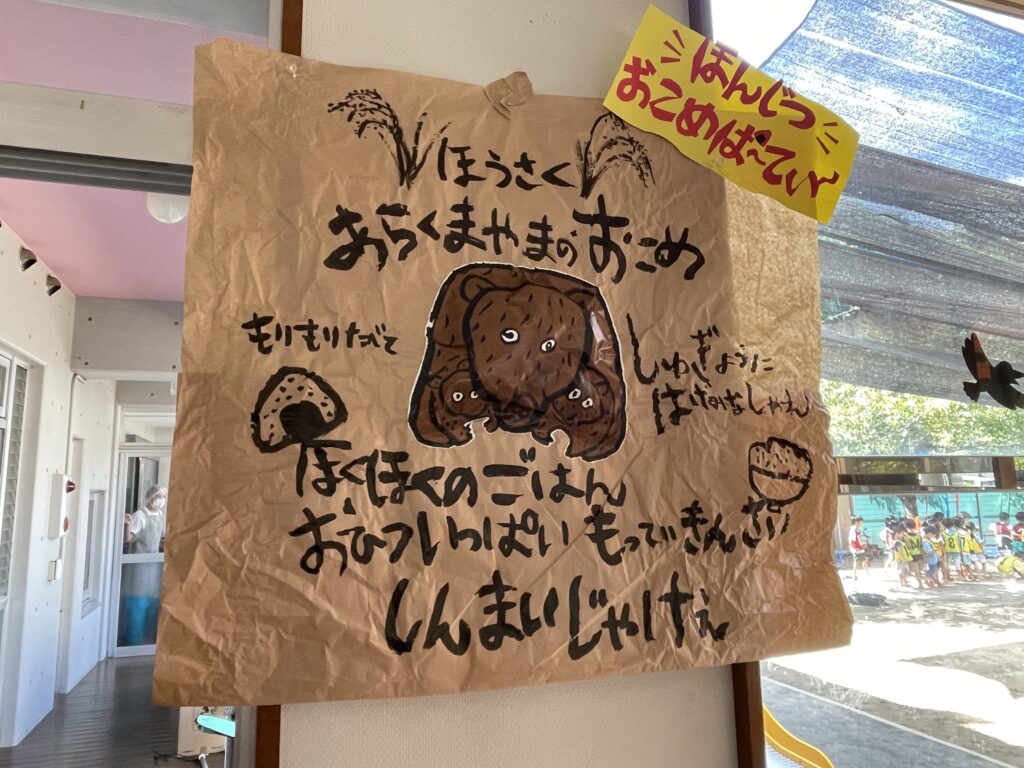 ほんじつ
おこめぱ〜てぃ〜
ほうさく
あらくまやまのおこめ
もりもりたべて
しわぎょうに
はげめなしゃえ
ほくほくのごはん
おひついっぱいもってぃきんさい
しんまいじゃけぇ